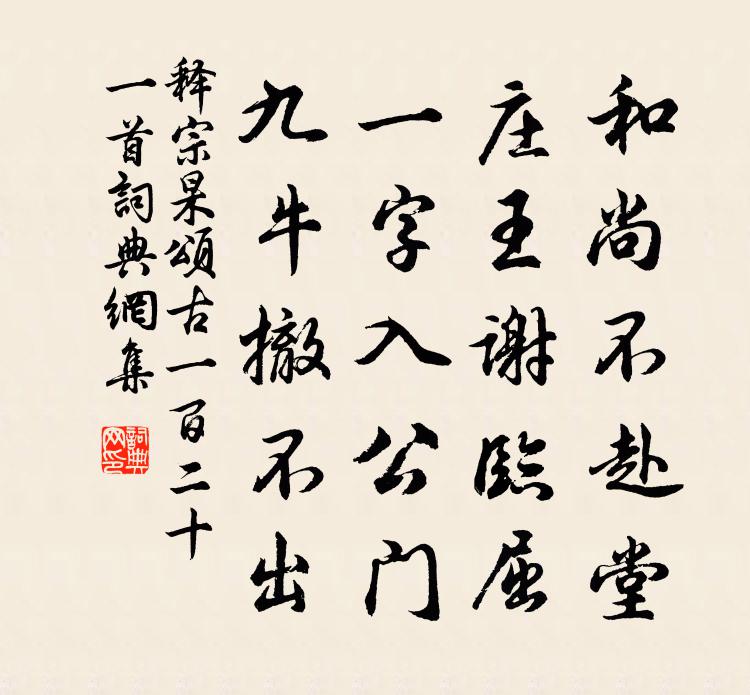 和尚不赴堂
庄王谢臨屈
一字入公门
九牛撤不出
释宗杲颂古一百二十
一首詞典網集
詞典
网印